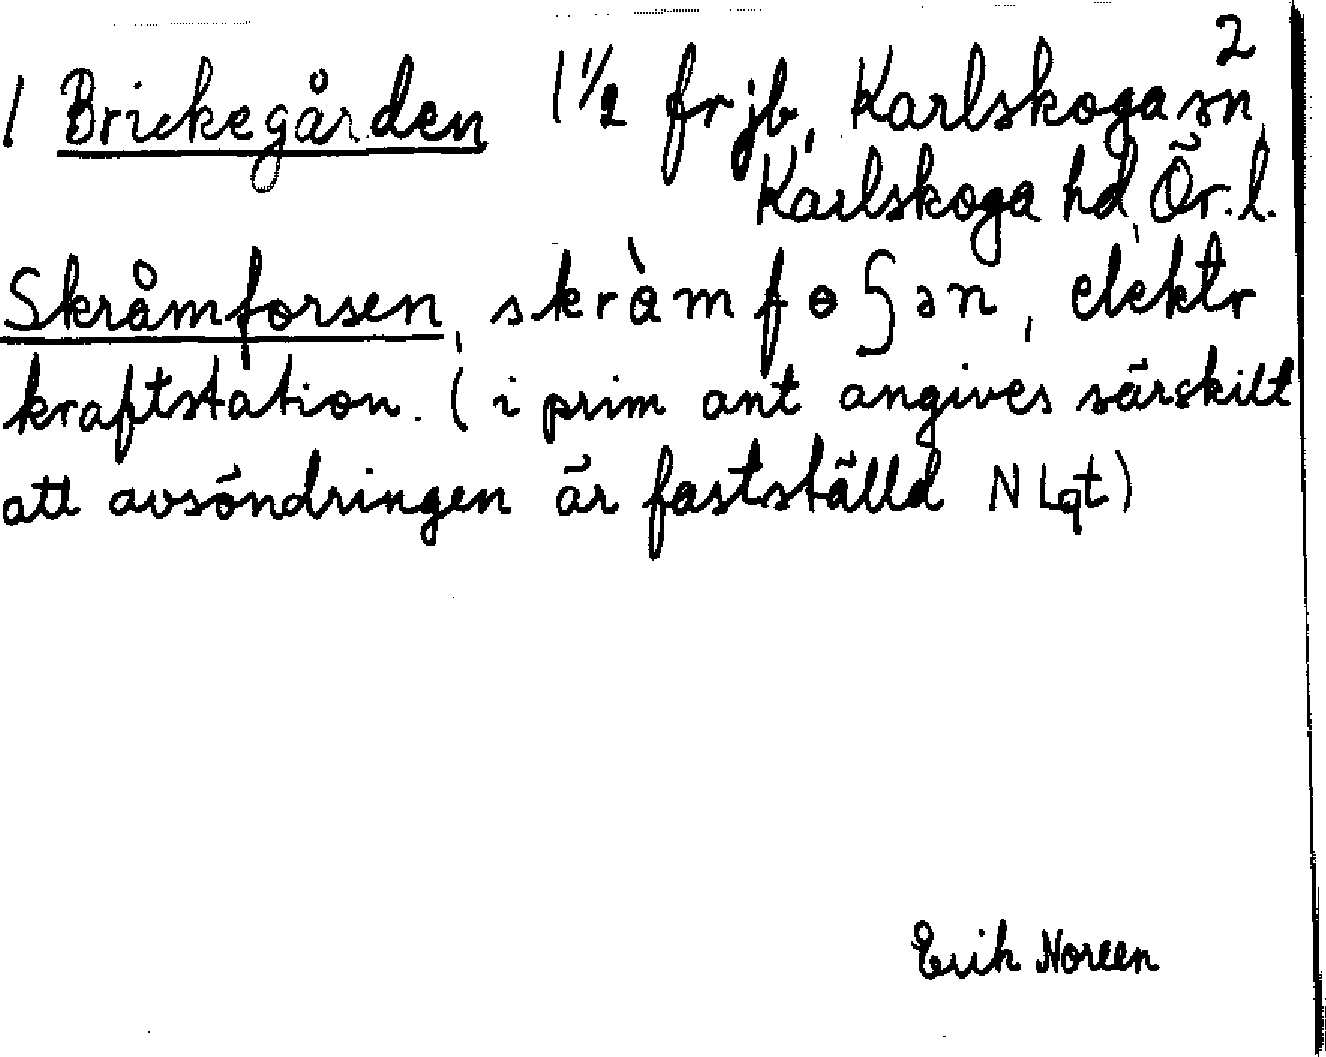 2
1 Brickegården 1 1/2 frjb, Karlskoga sn,
Karlskoga hd, Ör. l.
Skråmforsen, skràmfoʃən, elektr
kraftstation. (i prim ant angives särskilt
att avsöndringen är fastställd N Lqt)
Erik Noreen